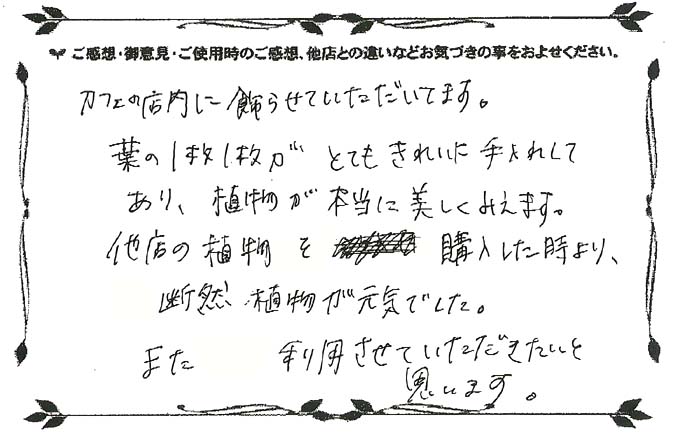 ご感想・御意見・ご使用時のご感想、他店との違いなどお気づきの事をおよせください。
カフェの店内に飾らせていただいてます。
葉の1枚1枚がとてもきれいに手入れして
あり、植物が本当に美しくみえます。
他店の植物を購入した時より、
断然植物が元気でした。
また利用させていただきたいと
思います。